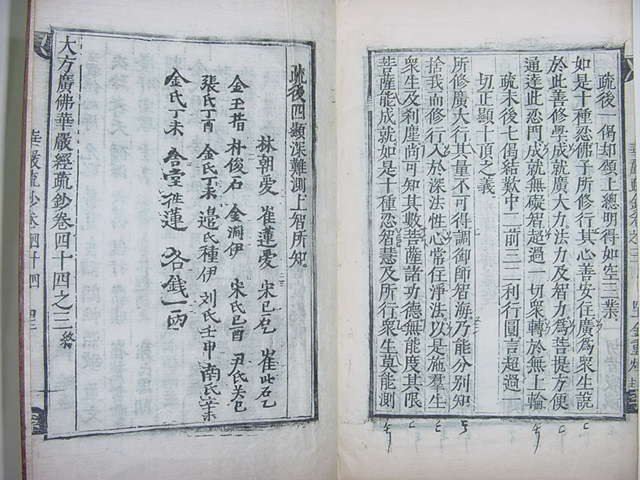 疏後一偈却頌上總明得如空三業
如是十種忍佛子所修行其心善安住廣爲衆生說
於此善修學成就廣大力法力及智力爲菩提方便
通達此忍門成就無礙智超過一切衆轉於無上輪
疏末後七偈結歎中二前三二利行圓言超過一
切正顯十頂之義
所修廣大行其量不可得調御師智海乃能分別知
捨我而修行入於深法性心常住淨法以是施羣生
衆生及刹塵尚可知其數菩薩諸功德無能度其限
菩薩能成就如是十種忍智慧及所行衆生莫能測
疏後四顯深難測上智所知
林朝愛 崔蓮愛 宋已石 崔此石
金王借 朴俊石 金澗伊 宋氏已酉 尹氏
張氏丁酉 金氏丁未 邉氏種伊 刘氏壬申 南氏
金氏丁未 蓮 各錢一兩
大方廣佛華嚴經疏鈔卷四十四之三 終
華嚴疏鈔卷四十四